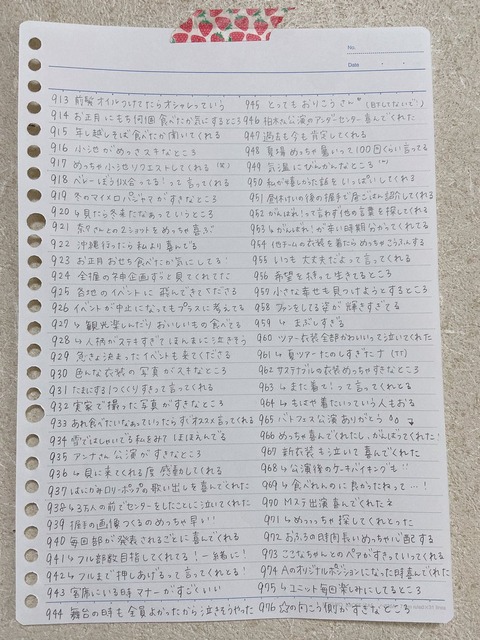 No.
Date
913 前髪オイルつけてたらオシャレっていう
914 お正月にもち何個食べたか気にするところ
915 年こしそば食べたか聞いてくれる
916 小池がめっさスキなところ
917 めっちゃ小池リクエストしてくれる(笑)
918 ベレーぼうり似合ってる!って言ってくれる
919 冬のマイメロパジャマがすきなところ
920 ↳見たら冬来たなぁっていうところ
921 奈々さんとの2ショットをめっちゃ喜ぶ
922 沖縄行ったら私より喜んでる
923 お正月おせち食べたか気にしてる!
924 全握の神企画ずっと見てくれてた
925 各地のイベントに飛んできてくださる
926 イベントが中止になってもプラスに考えてる
927 ↳観光楽しんだりおいしいもの食べてる
928 ↳人柄がステキすぎてほんまに泣きそう
929 急きょ決まったイベントも来てくださる
930 色んな衣装の写真がスキなところ
931 たまにする1つくくりすきって言ってくれる
932 実家で撮った写真がすきなところ
933 あれ食べたいなぁっていったらオススメ言ってくれる
934 雪ではしゃいでる私をみてほほえんでる
935 アンナさん公演がすきなところ
936 ↳見に来てくれる度感動してくれる
937 はじめおみロリポップの歌い出しを喜んでくれた
938 ↳3万人の前でセンターをしたことに泣いてくれた
939 握手の画像つくるのめっちゃ早い!!
940 毎回部が発表されるごとに喜んでくれる
941 ↳フル部数目指してくれてる!一緒に!
942 ↳フルまで押しあげるって言ってくれとる!
943 客席にいる時マナーがすごくいい
944 舞台の時も全員よかったから泣きそうやった
945 とってもおりこうさん(自分でしてないで)
946 柏木さん公演のアンダーセンター喜んでくれた
947 過去も今も肯定してくれる
948 夏場めっちゃ暑いって100回くらい言ってる
949 気温にびんかんなところ
950 私が嬉しかった話をいっぱいしてくれる
951 昼休けいの後の握手で昼ごはん紹介してくれる
952 がんばれ!って言わず他の言葉を探してくれる
953 ↳がんばれ!が辛い時期分かってくれてる
954 他チームの衣装を着たらめっちゃこうふんする
955 いつも大丈夫だよって言ってくれる
956 希望を持って生きてるところ
957 小さな幸せも見つけようとするところ
958 ファンをしてる姿が輝きすぎてる
959 ↳まぶしすぎる
960 ツアー衣装全部かわいいって泣いてくれた
961 ↳夏ツアーたのしすぎたナ(TT)
962 サステナブルの衣装めっちゃすきなところ
963 ↳まだ着て!って言ってくれとる
964 ↳もはや着たいっていう人もおる
965 バトフェス公演ありがとう
966 めっちゃ喜んでくれたし、がんばってくれた!
967 新衣装も泣いて喜んでくれた
968 ↳公演後のケーキバイキングも!!
969 ↳食べれんのに良かったねって…!
970 Mステ出演喜んでくれたネ
971 ↳めっっちゃ探してくれとった
972 おふろの時間長いめっちゃ心配する
973 ここなちゃんとのペアがすきっていってくれる
974 Aのオリジナルポジションになった日喜んでくれた
975 ↳ユニット毎回楽しみにしてるところ
976 ☆の向こう側がすきなところ